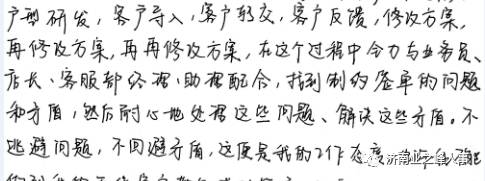 户型研发，客户导入，客户转交，客户反馈，修改方案，
再修改方案，再再修改方案，在这个过程中合力与业务员、
店长、客服部经理、助理配合，找到制约签单的问题
和矛盾，然后耐心地处理这些问题、解决这些矛盾。不
逃避问题，不回避矛盾，这便是我的工作态度
济南业之峰人事